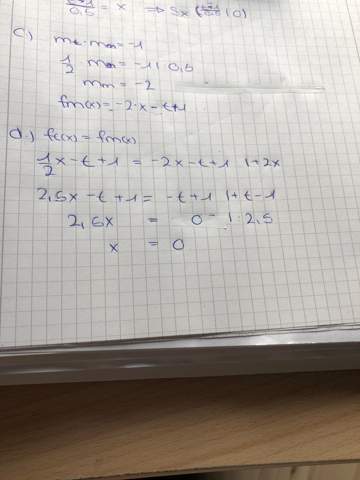 /0,5 = x ⇒ Sx ( | 0)
c.) mt · mn = -1
1/2 · mn = -1 | : 0,5
mn = -2
fn(x) = -2 · x - t+1
d.) ft(x) = fn(x)
1/2 x - t + 1 = -2x - t + 1 | + 2x
2,5x - t + 1 = -t + 1 | + t - 1
2,5x = 0 | : 2,5
x = 0